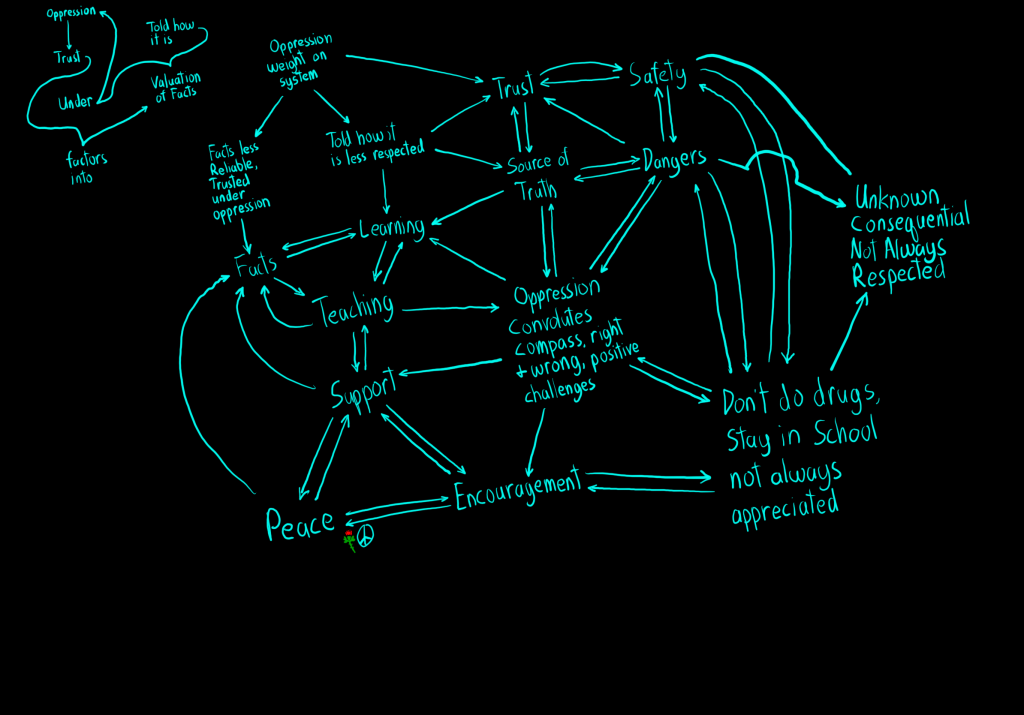 Oppression
Trust
Under
factors
into
Told how
it is
Valuation
of Facts
Oppression
weight on
system
Facts less
Reliable,
Trusted
under
oppression
Told how it
is less respected
Trust
Safety
Source of
Truth
Dangers
Unknown
Consequential
Not Always
Respected
Learning
Facts
Teaching
Oppression
convolutes
compass, right
+ wrong, positive
challenges
Support
Don't do drugs,
Stay in School
not always
appreciated
Encouragement
Peace